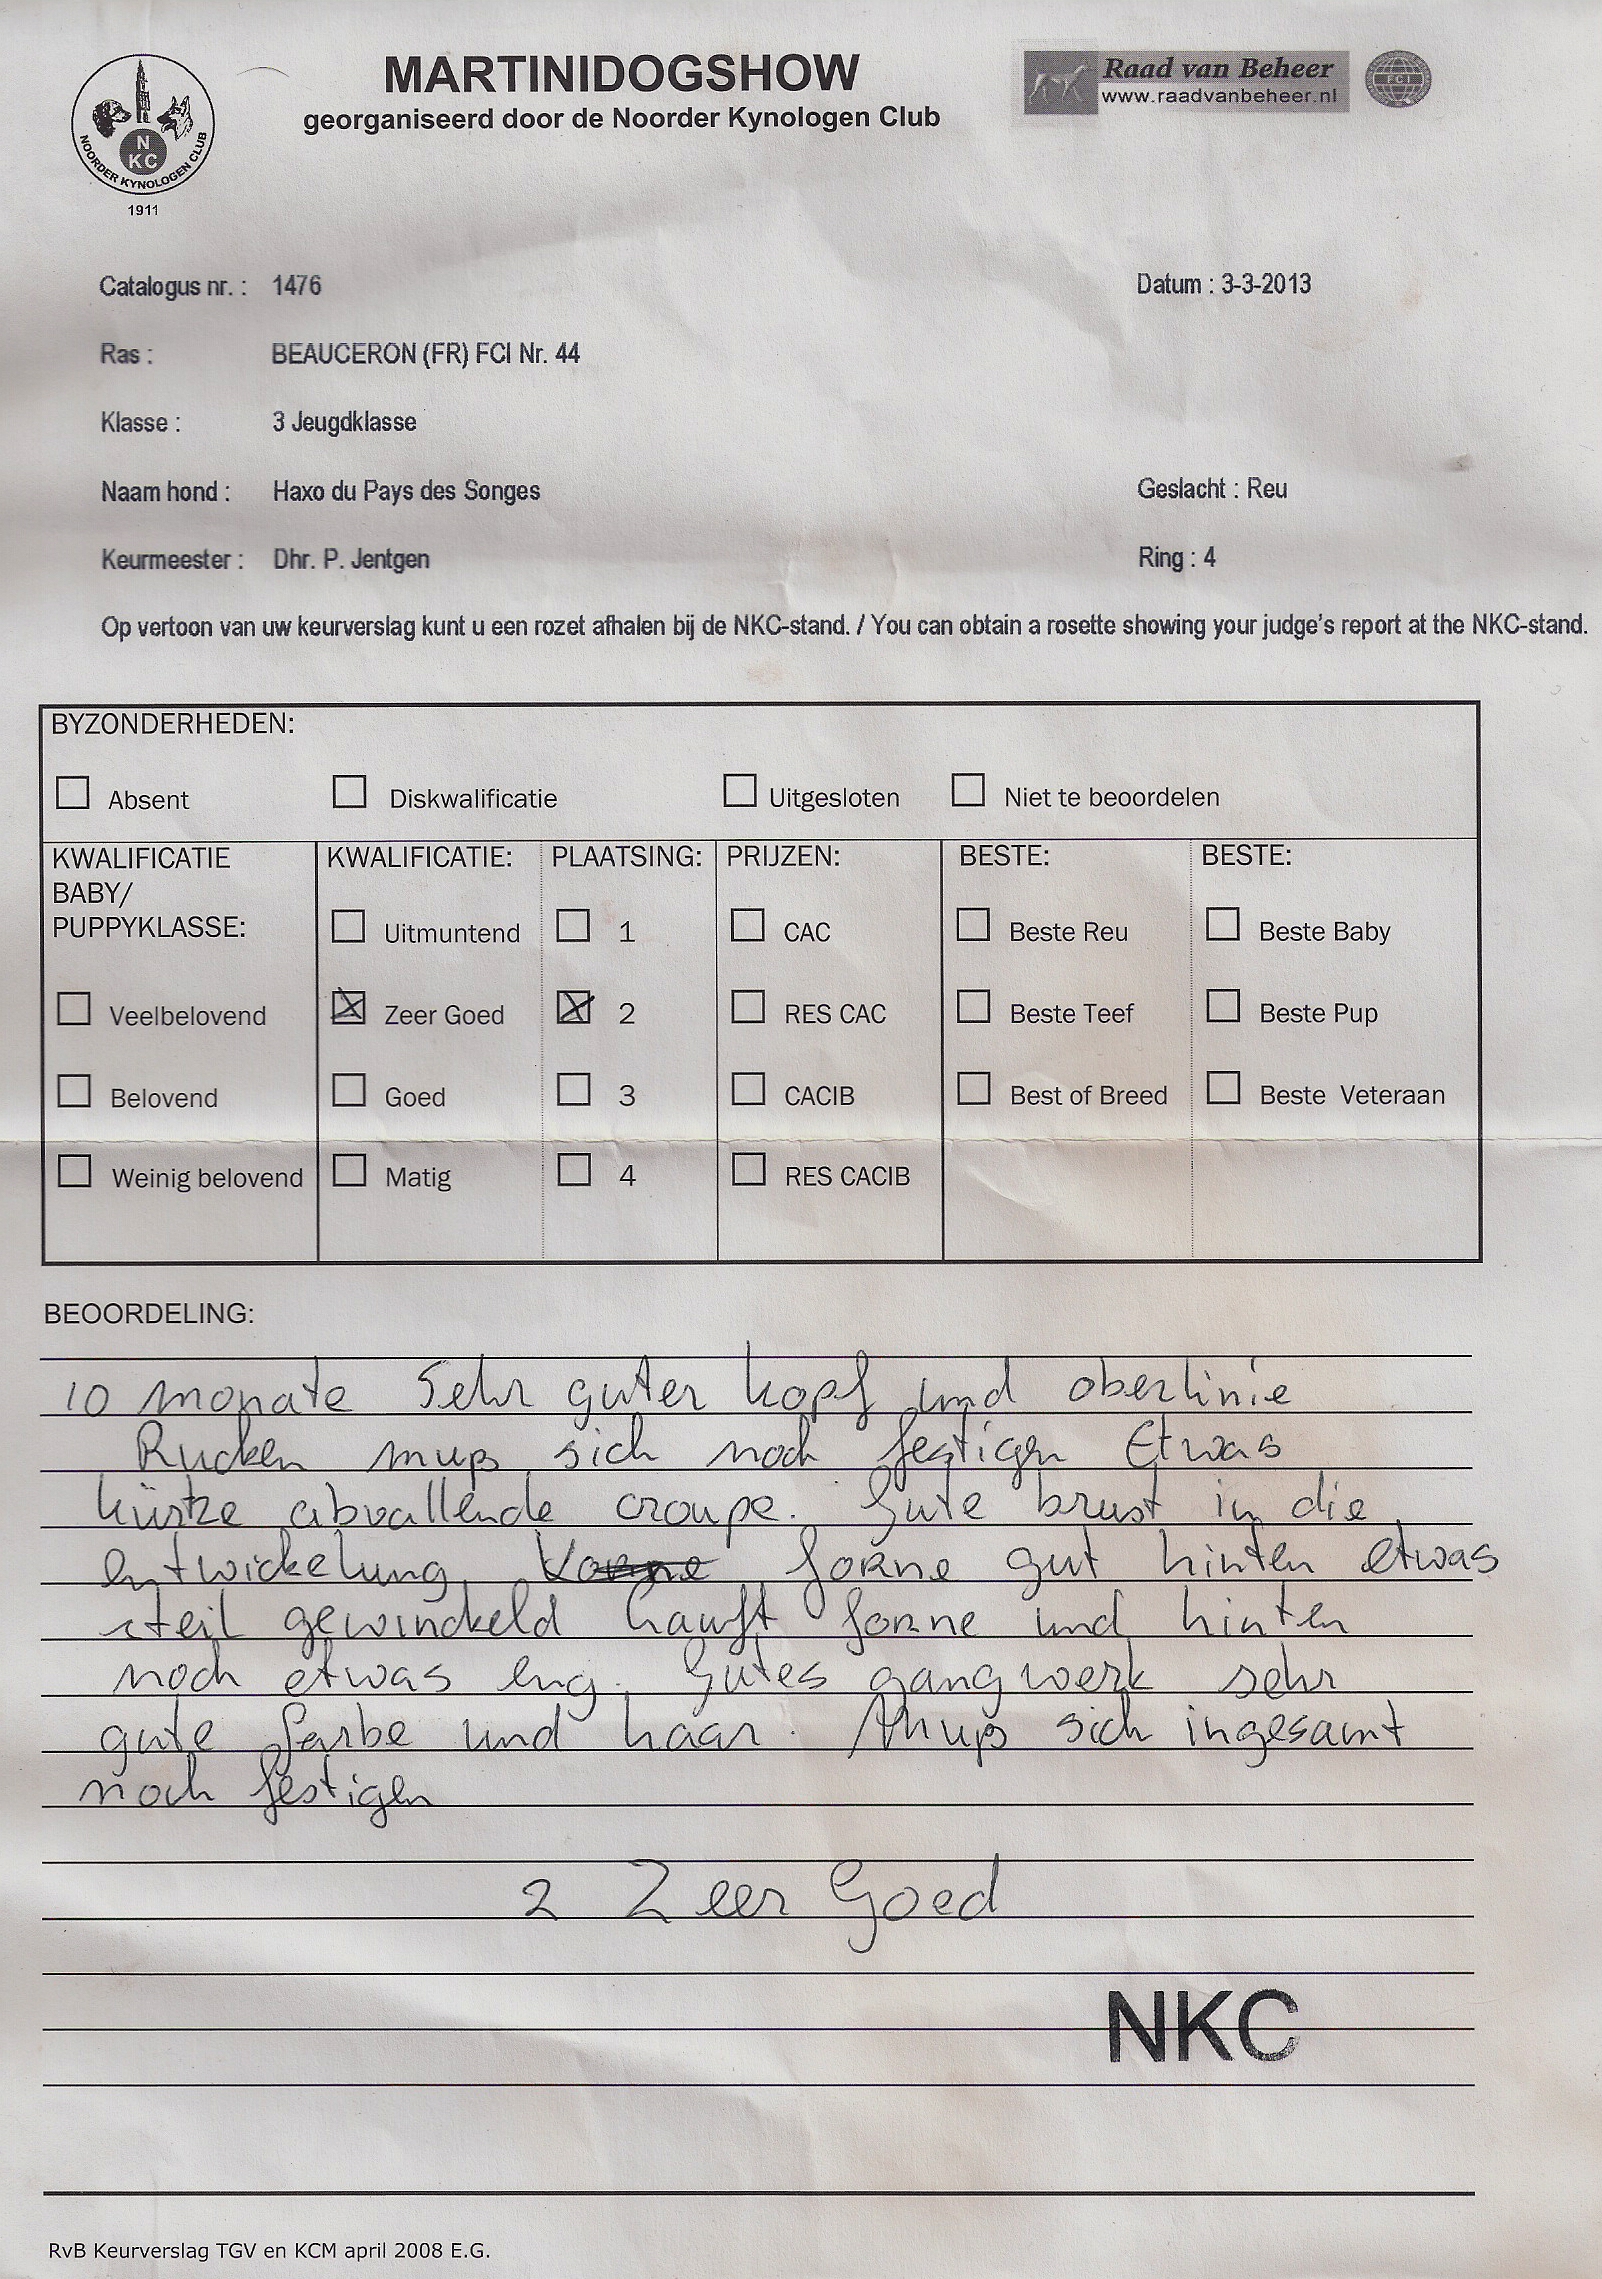 MARTINIDOGSHOW
georganiseerd door de Noorder Kynologen Club
Raad van Beheer
www.raadvanbeheer.nl
FCI
N
KC
NOORDER KYNOLOGEN CLUB
1911
Catalogus nr. : 1476 Datum : 3-3-2013
Ras : BEAUCERON (FR) FCI Nr. 44
Klasse : 3 Jeugdklasse
Naam hond : Haxo du Pays des Songes Geslacht : Reu
Keurmeester : Dhr. P. Jentgen Ring : 4
Op vertoon van uw keurverslag kunt u een rozet afhalen bij de NKC-stand. / You can obtain a rosette showing your judge's report at the NKC-stand.
BYZONDERHEDEN:
Absent Diskwalificatie Uitgesloten Niet te beoordelen
KWALIFICATIE
BABY/
PUPPYKLASSE:
Veelbelovend
Belovend
Weinig belovend
KWALIFICATIE:
Uitmuntend
Zeer Goed
Goed
Matig
PLAATSING:
1
2
3
4
PRIJZEN:
CAC
RES CAC
CACIB
RES CACIB
BESTE:
Beste Reu
Beste Teef
Best of Breed
BESTE:
Beste Baby
Beste Pup
Beste Veteraan
BEOORDELING:
10 monate Sehr guter kopf und oberlinie
Rucken muß sich noch festigen Etwas
kürtze abvallende croupe. Gute brust in die
entwickelung. Vorne forne gut hinten etwas
steil gewinckeld hauft forne und hinten
noch etwas eng. Gutes gangwerk sehr
gute farbe und haar. Muß sich ingesamt
noch festigen
2 Zeer Goed
NKC
RvB Keurverslag TGV en KCM april 2008 E.G.